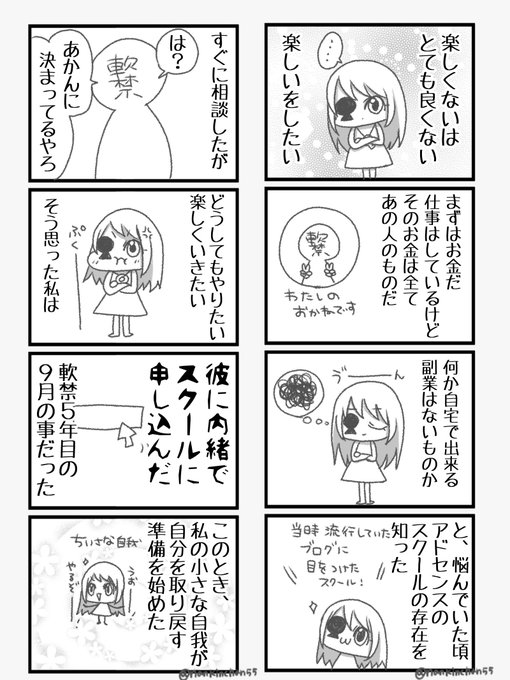 楽しくないは
とても良くない
楽しいをしたい
…
まずはお金だ
仕事はしているけど
そのお金は全て
あの人のものだ
軟禁
わたしの
おかねです
何か自宅で出来る
副業はないものか
ゔーーん
と、悩んでいた頃
アドセンスの
スクールの存在を
知った
当時流行していた
ブログに
目をつけた
スクール!
すぐに相談したが
は?
軟禁
あかんに
決まってるやろ
どうしてもやりたい
楽しくいきたい
そう思った私は
ぷく
彼に内緒で
スクールに
申し込んだ
軟禁5年目の
9月の事だった
このとき、
私の小さな自我が
自分を取り戻す
準備を始めた
ちいさな自我
うお––!
やるぞ––!